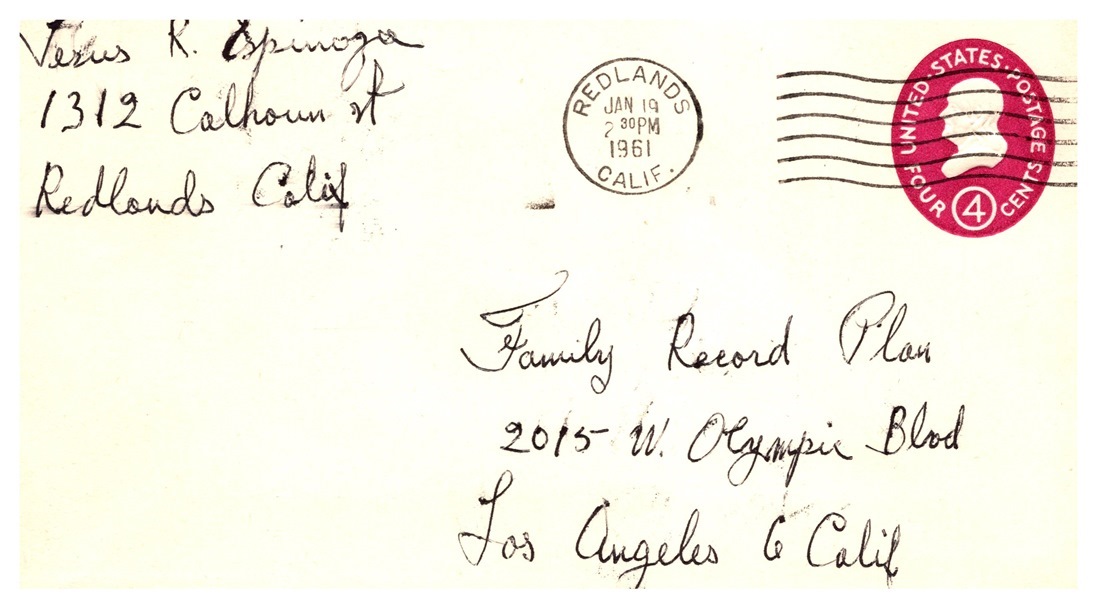 Jesus R. Espinoza
1312 Calhoun st
Redlands Calif
REDLANDS
JAN 19
2 30PM
1961
CALIF.
UNITED STATES POSTAGE
FOUR 4 CENTS
Family Record Plan
2015 W. Olympic Blvd
Los Angeles 6 Calif